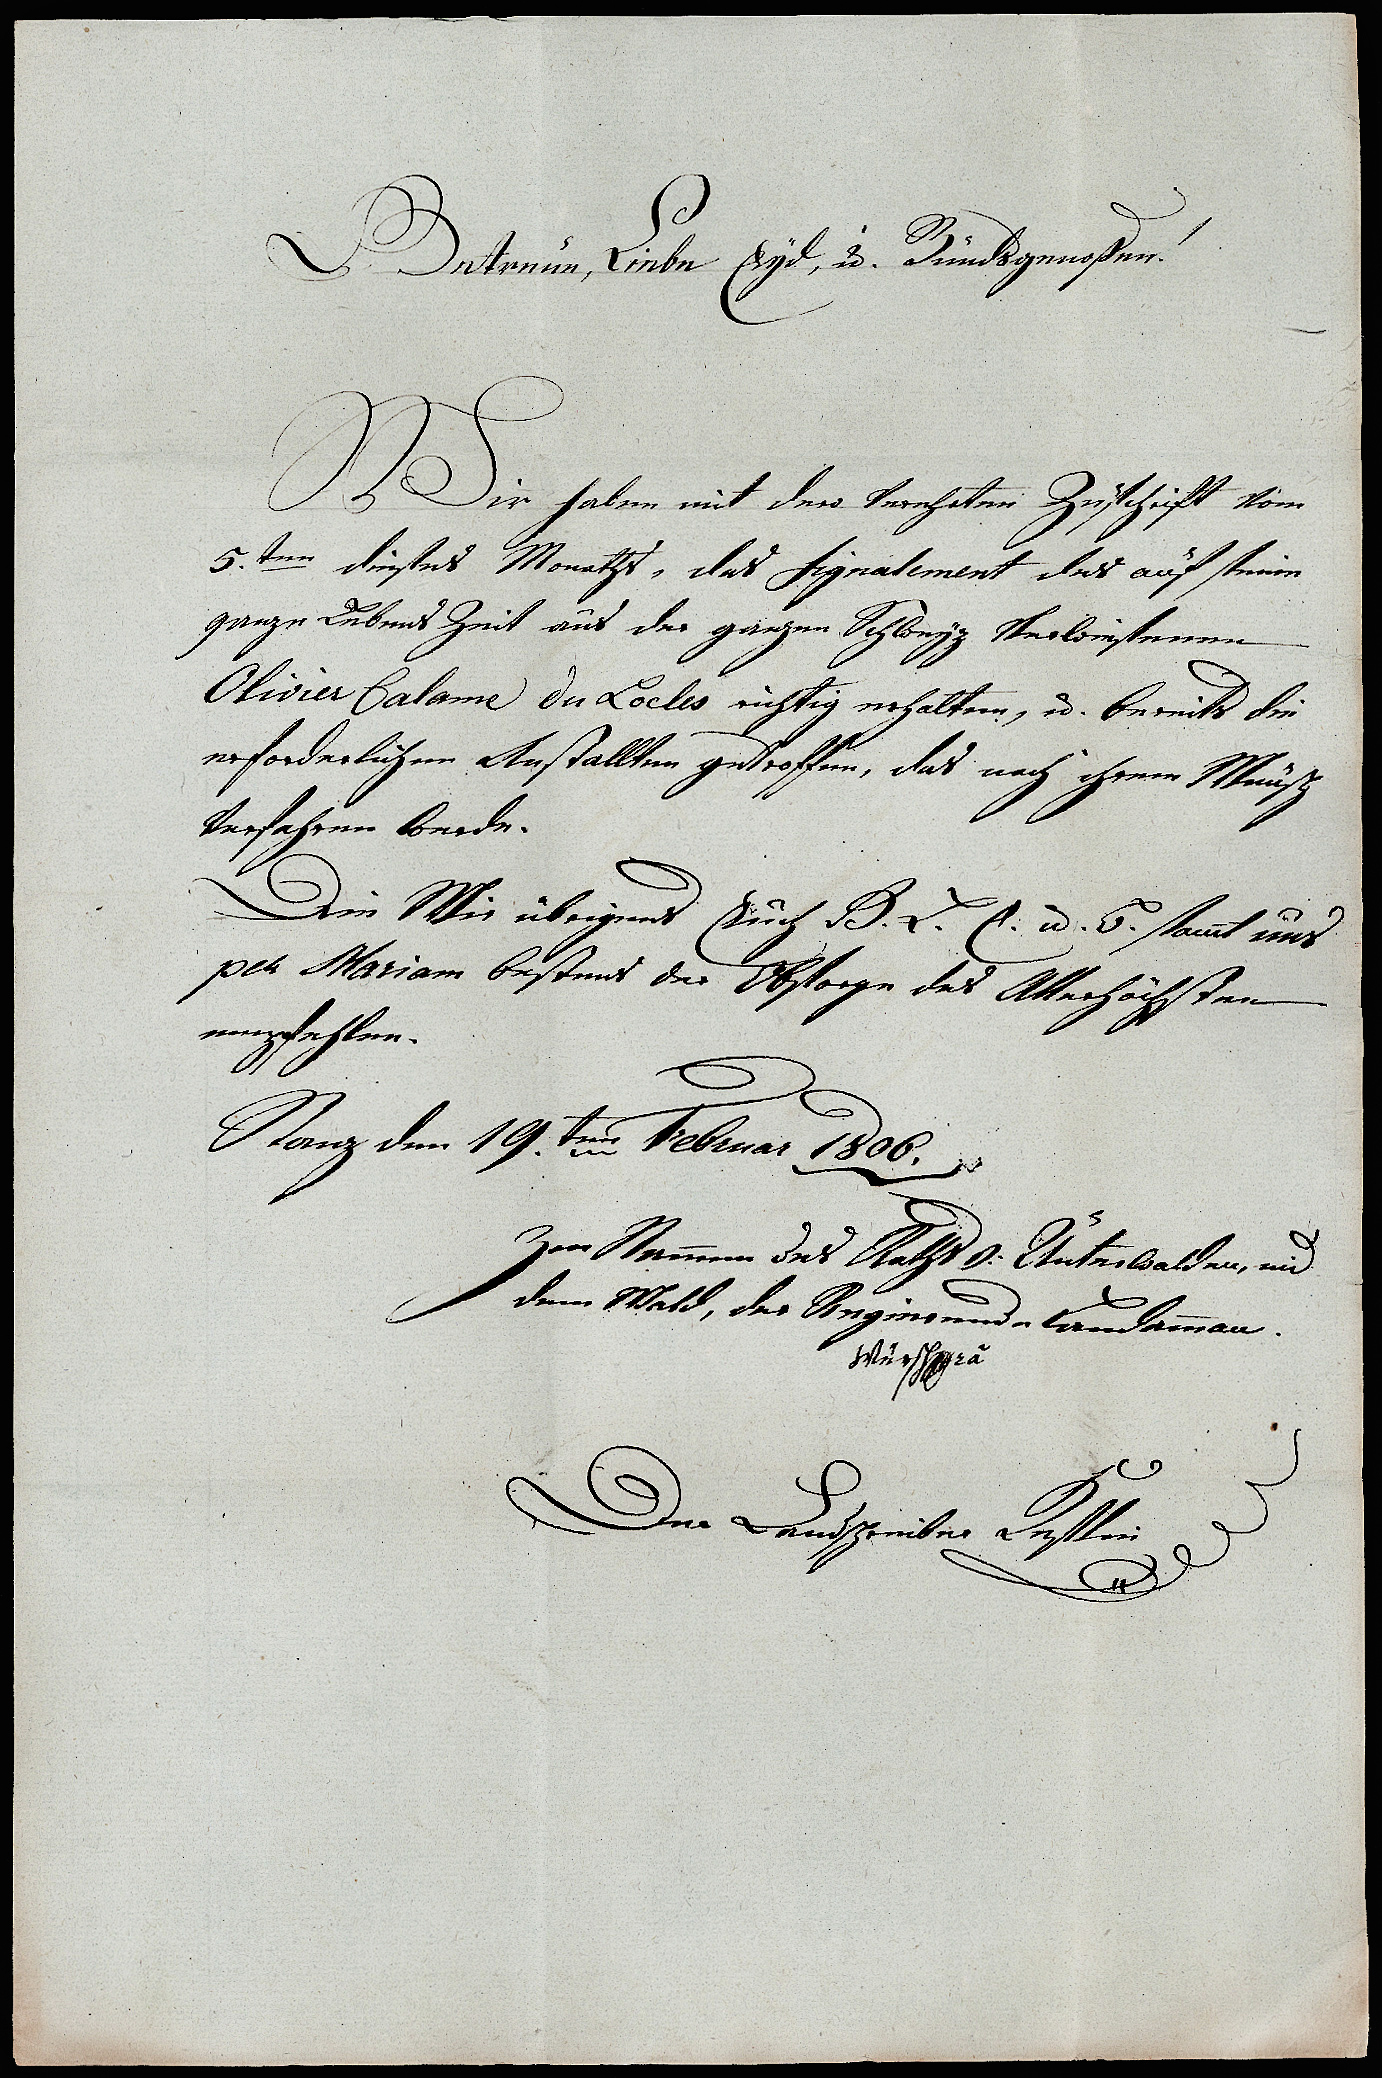 Getreüe, Liebe Eyd, u. Bundsgenoßen!
Wir haben mit der verehrten Zuschrift vom
5.ten dieses Monaths, das signalement des auf seine
ganze Lebens Zeit aus der ganzen Schweyz Verwiesenen
Olivier Calame du Locles richtig erhalten, u. bereits die
erforderlichen Anstallten getroffen, das nach ihrem Wunsch
Verfahren werde.
Die Wir übrigens Euch G. L. E. u. B. samt uns
per Mariam bestens der Obsorge des Allerhöchsten
empfehlen.
Stanz den 19.ten Februar 1806.
Im Nammen des Raths v. Unterwalden, nid
dem Wald, der Regierende Landamman.
Würsch
Der Landschreiber